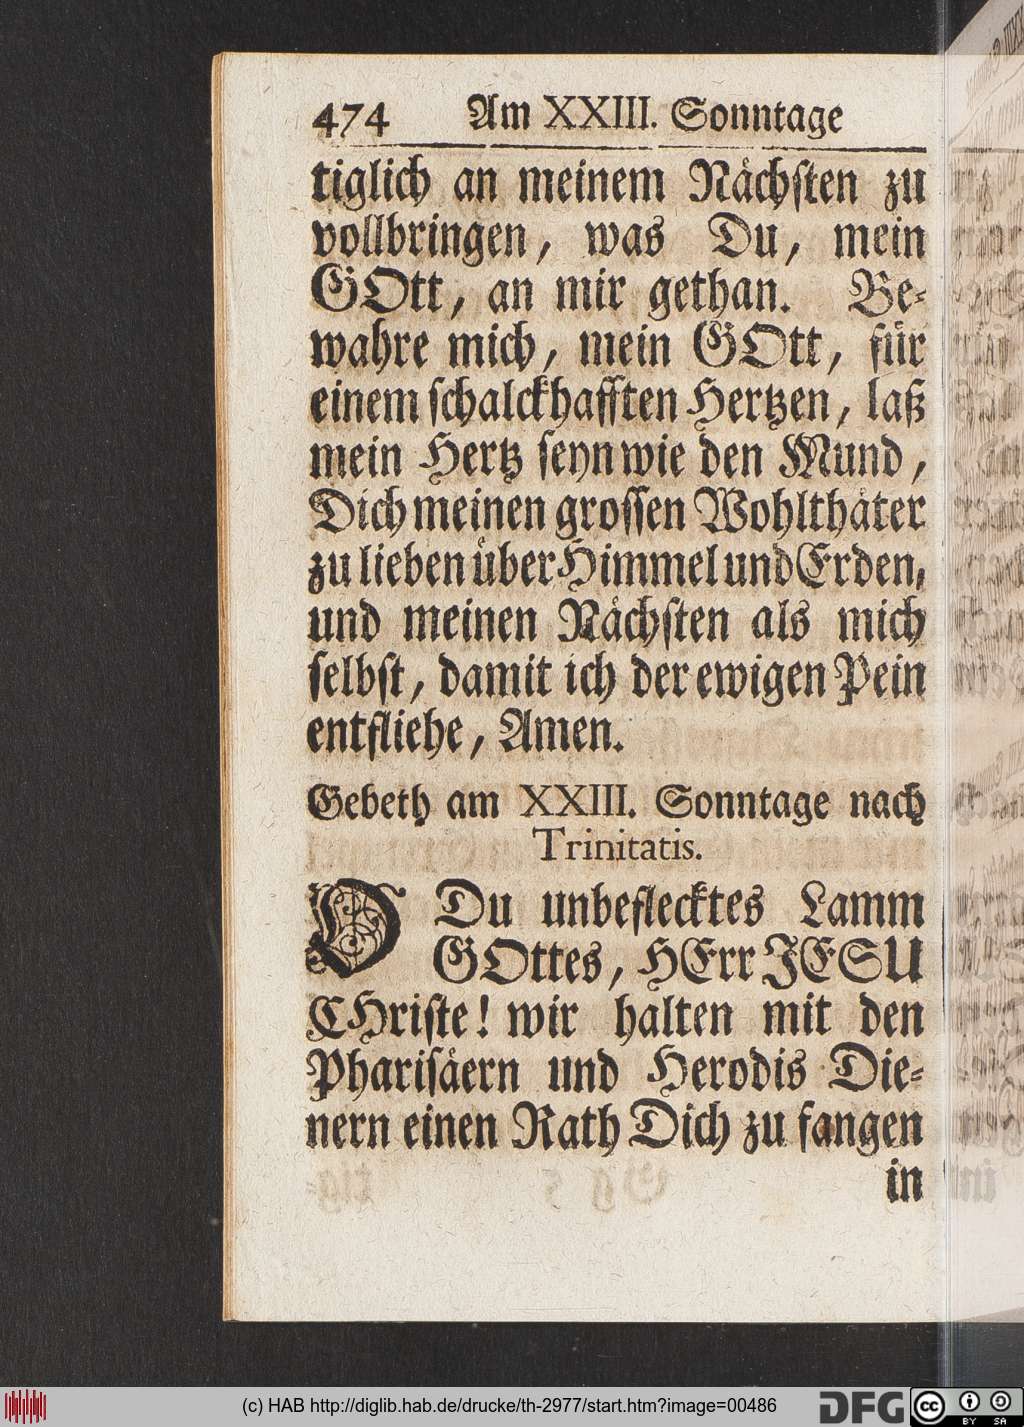 474 Am XXIII. Sonntage
tiglich an meinem Nächsten zu
vollbringen, was Du, mein
GOtt, an mir gethan. Be-
wahre mich, mein GOtt, für
einem schalckhafften Hertzen, laß
mein Hertz seyn wie den Mund,
Dich meinen grossen Wohlthäter
zu lieben über Himmel und Erden,
und meinen Nächsten als mich
selbst, damit ich der ewigen Pein
entfliehe, Amen.
Gebeth am XXIII. Sonntage nach
Trinitatis.
O Du unbeflecktes Lamm
GOttes, HErr JESU
CHriste! wir halten mit den
Pharisäern und Herodis Die-
nern einen Rath Dich zu fangen
in
(c) HAB http://diglib.hab.de/drucke/th-2977/start.htm?image=00486
DFG
cc BY SA